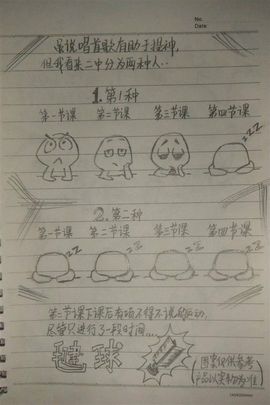 No.
Date
虽说唱首歌有助于提神,
但我看来二中分为两种人..
1.第1种
第一节课 第二节课 第三节课 第四节课
zzZ
2.第二种
第一节课 第二节课 第三节课 第四节课
zZ zZ zZ zZ
第二节课下课后有项不得不说的运动,
尽管只进行了一段时间....
毽球
(图案仅供参考
产品以实物为准)